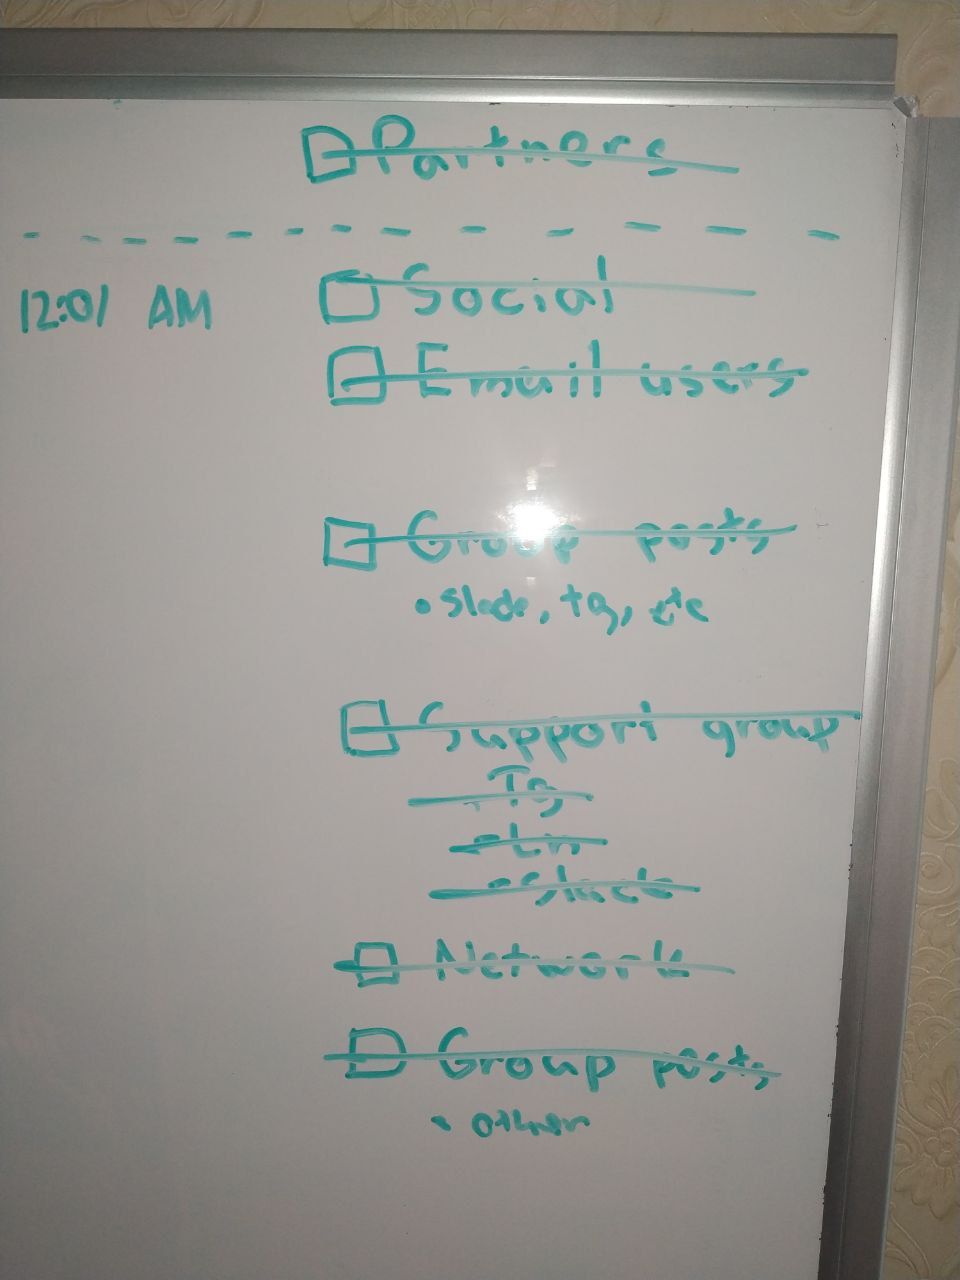 Partners
12:01 AM Social
Email users
Group posts
• slack, tg, etc
Support group
Tg
Ln
Slack
Network
Group posts
• other